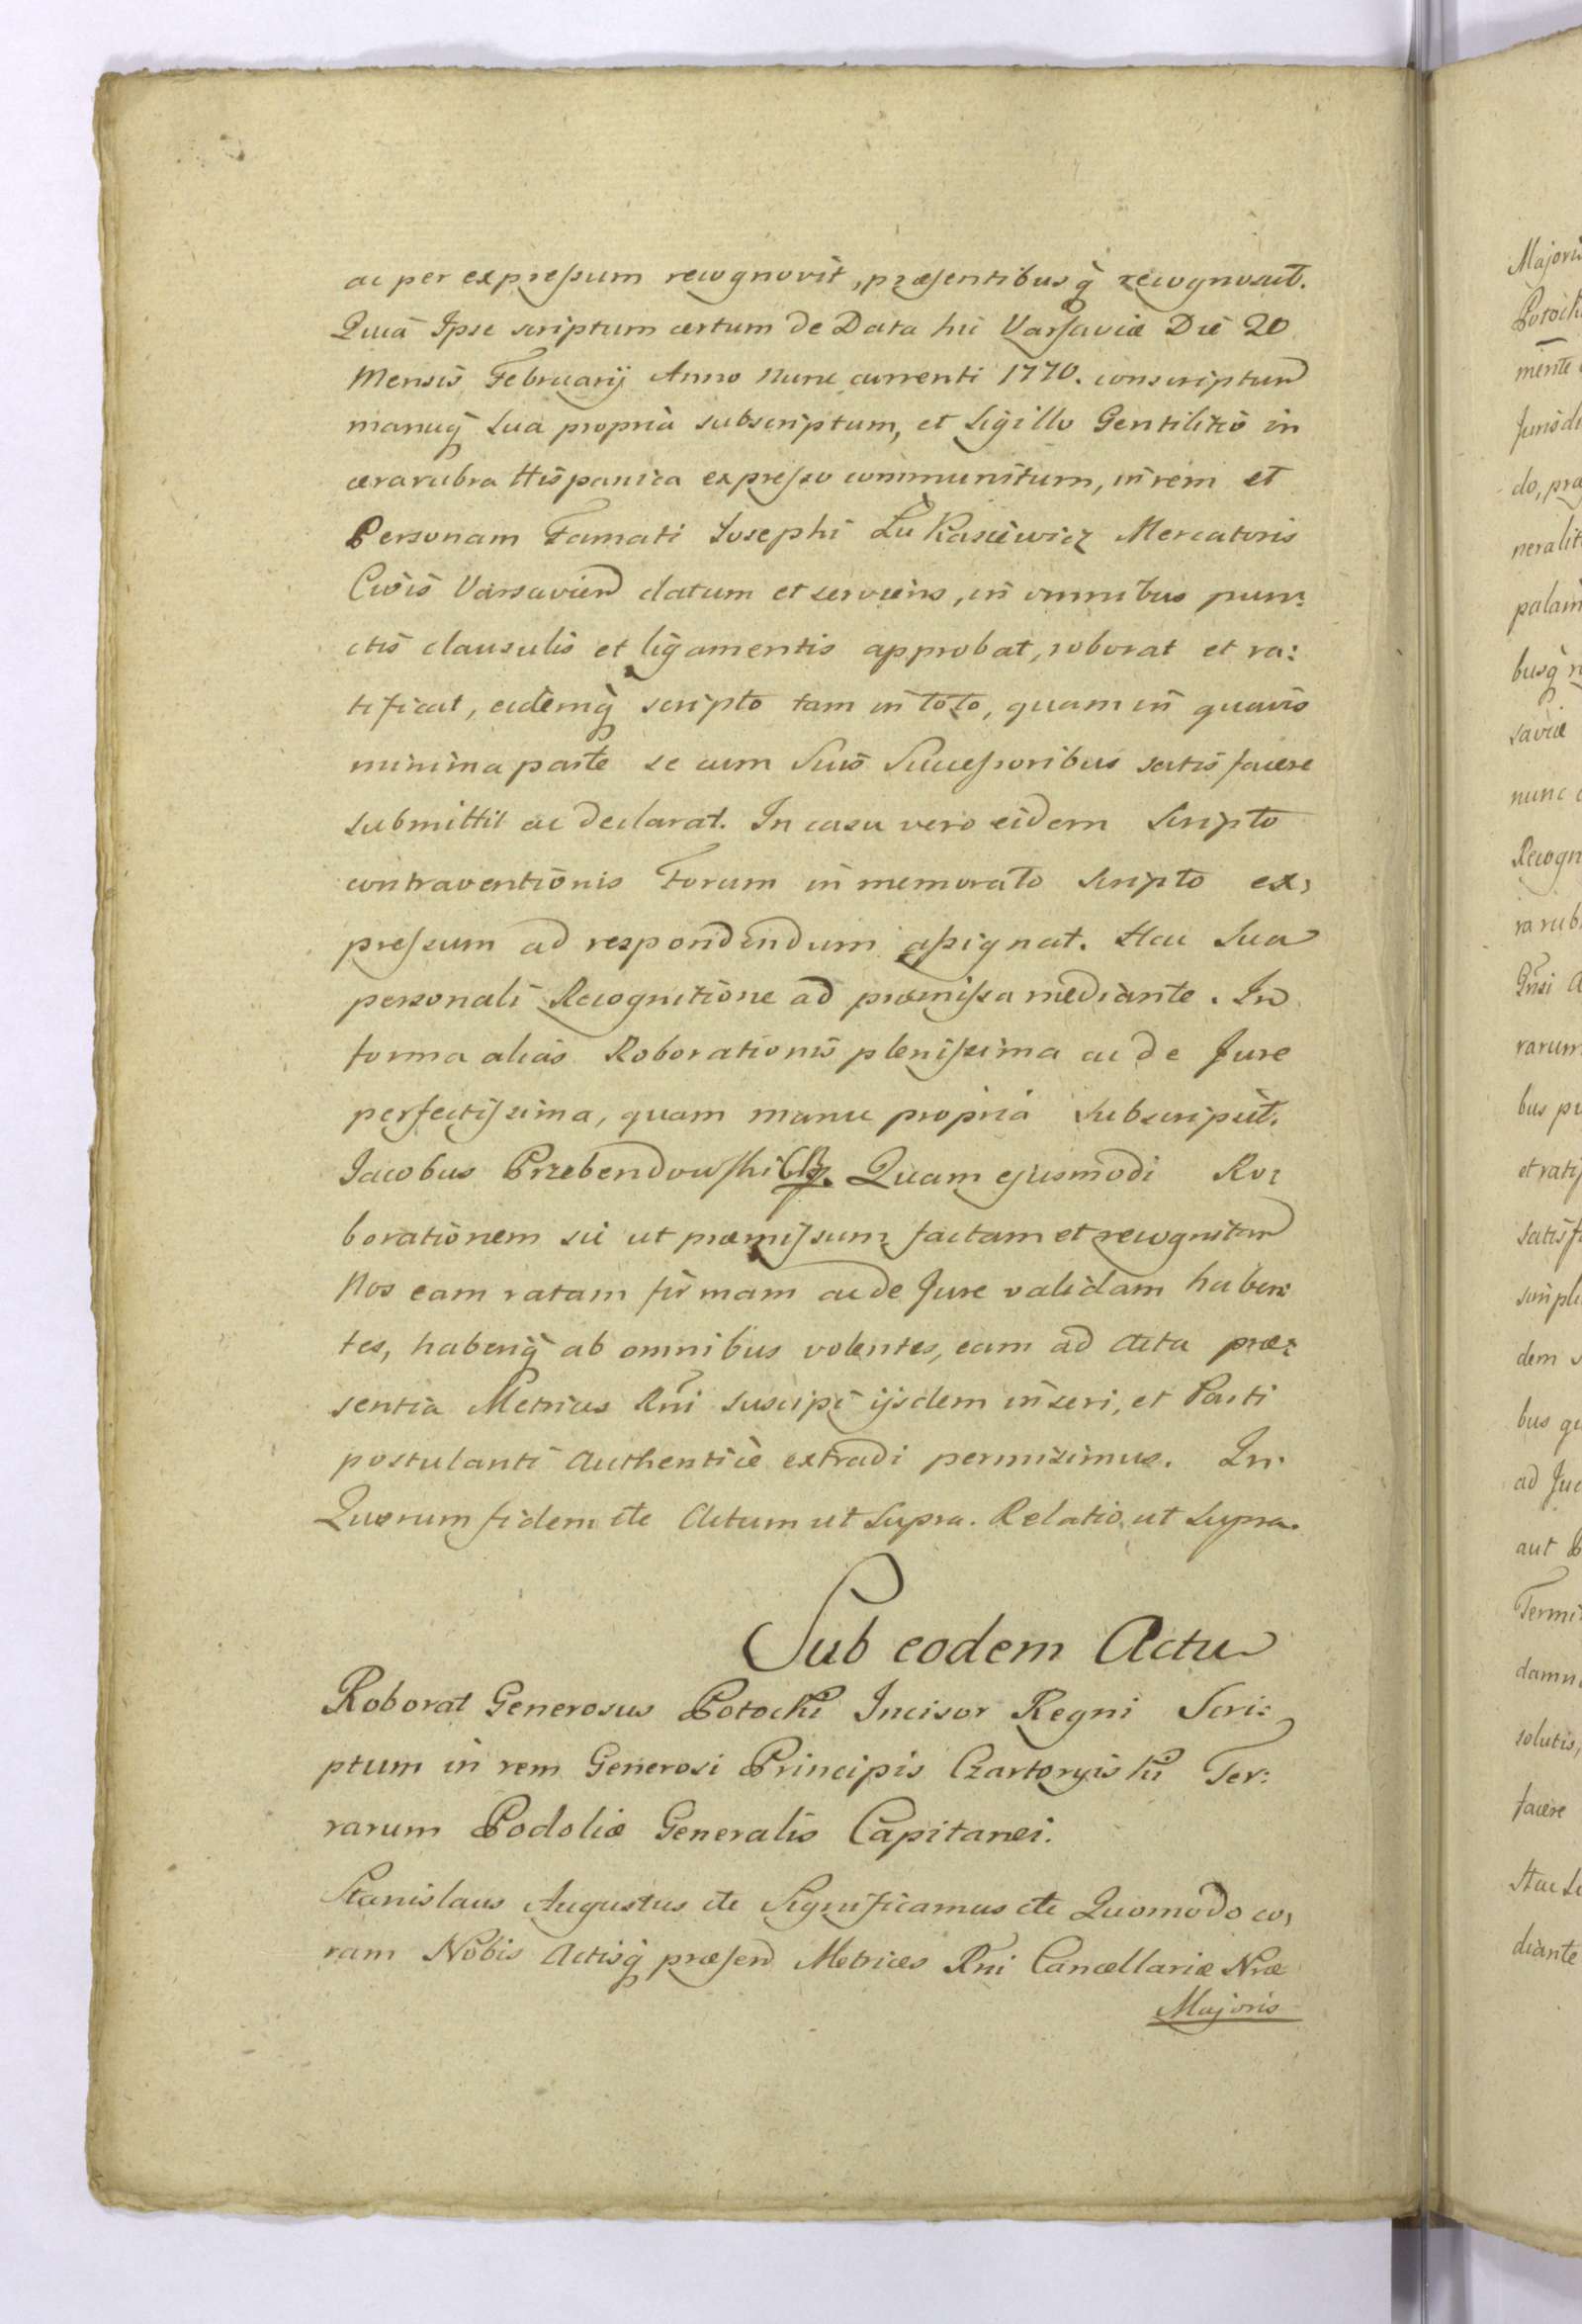 ac per expressum recognovit, præsentibusq̀ recognoscit.
Quia Ipse scriptum certum de Data hic Varsaviæ Die 20
Mensis Februarij Anno nunc currenti 1770. conscriptum
manuq̀ sua propria subscriptum, et Sigillo Gentilitio in
cera rubra Hispanica expresso communitum, in rem et
Personam Famati Josephi Łukasiewicz Mercatoris
Civis Varsavien datum et serviens, in omnibus pun:
ctis clausulis et ligamentis approbat, roborat et ra:
tificat, eidemq̀ scripto tam in toto, quam in quavis
minima parte se cum Suis Successoribus satisfacere
submittit ac declarat. In casu vero eidem Scripto
contraventionis Forum in memorato Scripto ex,
pressum ad respondendum assignat. Hac Sua
personali Recognitione ad præmissa mediante. In
forma alias Roborationis plenissima ac de Jure
perfectissima, quam manu propria Subscripsit.
Jacobus Przebendowski Quam ejusmodi Ro:
borationem sic ut præmissum factam et recognitam
Nos eam ratam firmam ac de Jure validam haben:
tes, haberiq̀ ab omnibus volentes, eam ad Acta præ:
sentia Metrices Rni suscipi ijsdem inseri, et Parti
postulanti Authentice extradi permisimus. In
Quorum fidem etc Actum ut Supra. Relatio ut Supra.
Sub eodem Actu
Roborat Generosus Potocki Incisor Regni Scri:
ptum in rem Generosi Principis Czartoryiski Ter:
rarum Podoliæ Generalis Capitanei.
Stanislaus Augustus etc Significamus etc Quomodo co,
ram Nobis Actisq̀ præsen Metrices Rni Cancellariæ Nræ
Majoris